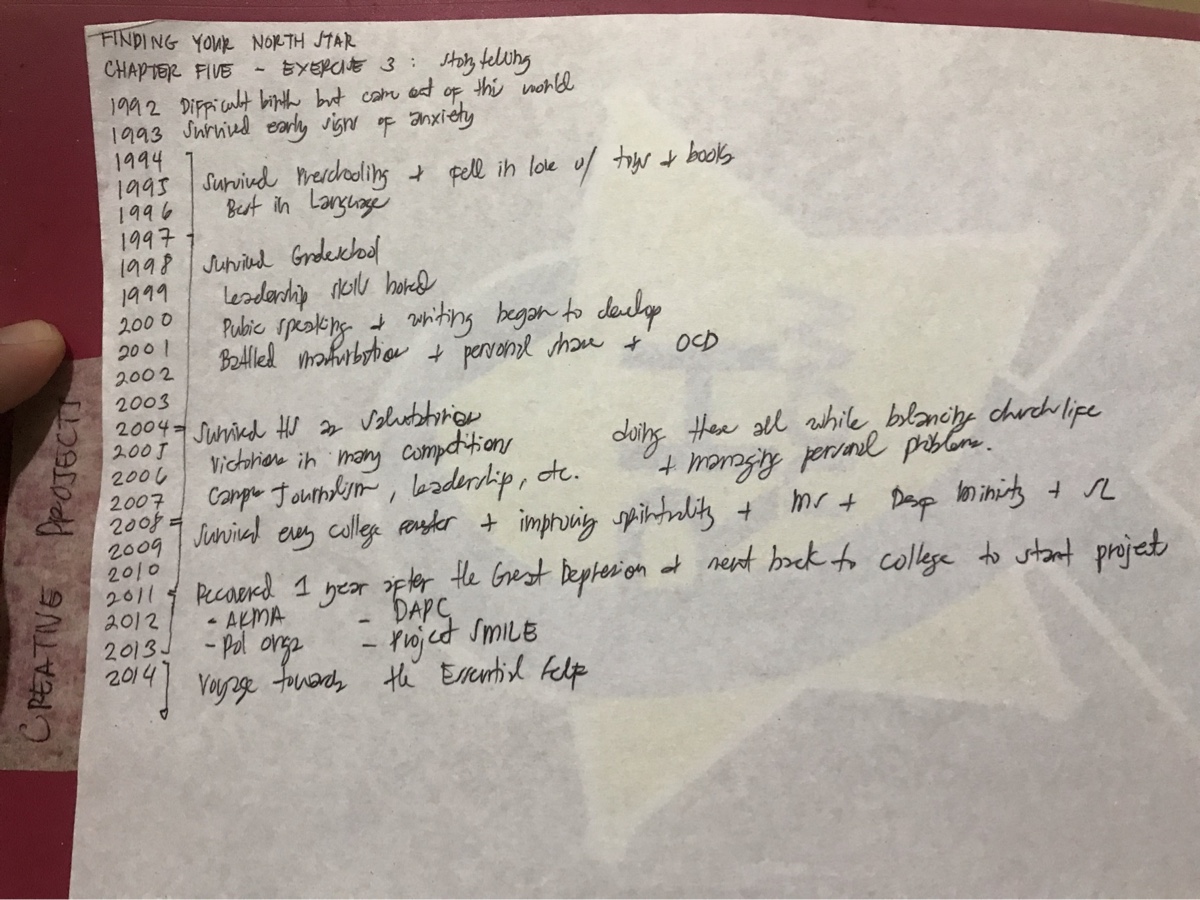 FINDING YOUR NORTH STAR
CHAPTER FIVE - EXERCISE 3 : storytelling
1992 Difficult birth but came out of this world
1993 Survived early signs of anxiety
1994
1995 Survived Preschooling + fell in love w/ toys + books
1996 Best in Language
1997
1998 Survived Gradeschool
1999 Leadership skills
2000 Pubic speaking + writing began to develop
2001 Battled masturbation + personal shame + OCD
2002
2003
2004 Survived HS as Salutatorian
2005 Victorious in many competitions
2006 Campus Journalism, leadership, etc.
doing these all while balancing church life
+ managing personal problems.
2007
2008 Survived every college + improving spirituality + MS + + SL
2009
2010
2011 Recovered 1 year after the Great Depression + went back to college to start project
2012 - AKMA - DAPC
2013 - Pol orgs - Project SMILE
2014 Voyage towards the Essential Self
CREATIVE PROJECTS